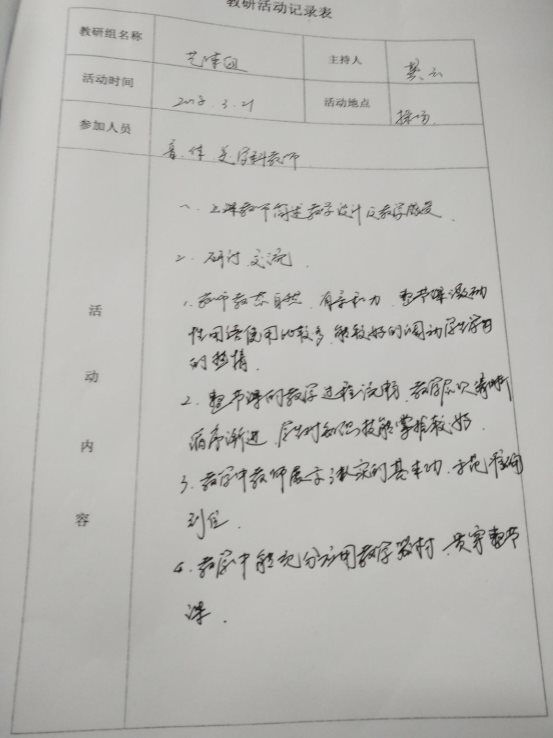 教研活动记录表
教研组名称 艺体组 主持人 樊云
活动时间 3.21 活动地点 操场
参加人员 音、体、美学科教师
活动内容
一、上课教师简述教学设计及教学感受.
二、研讨交流
1、教师教态自然,有亲和力,整节课激励
性用语使用比较多,能较好的调动学生学习
的热情.
2、整节课的教学过程流畅,教学层次清晰
循序渐进,学生对知识技能掌握较好.
3、教学中教师展示扎实的基本功,示范准确
到位.
4、教学中能充分利用教学器材,贯穿整节
课.